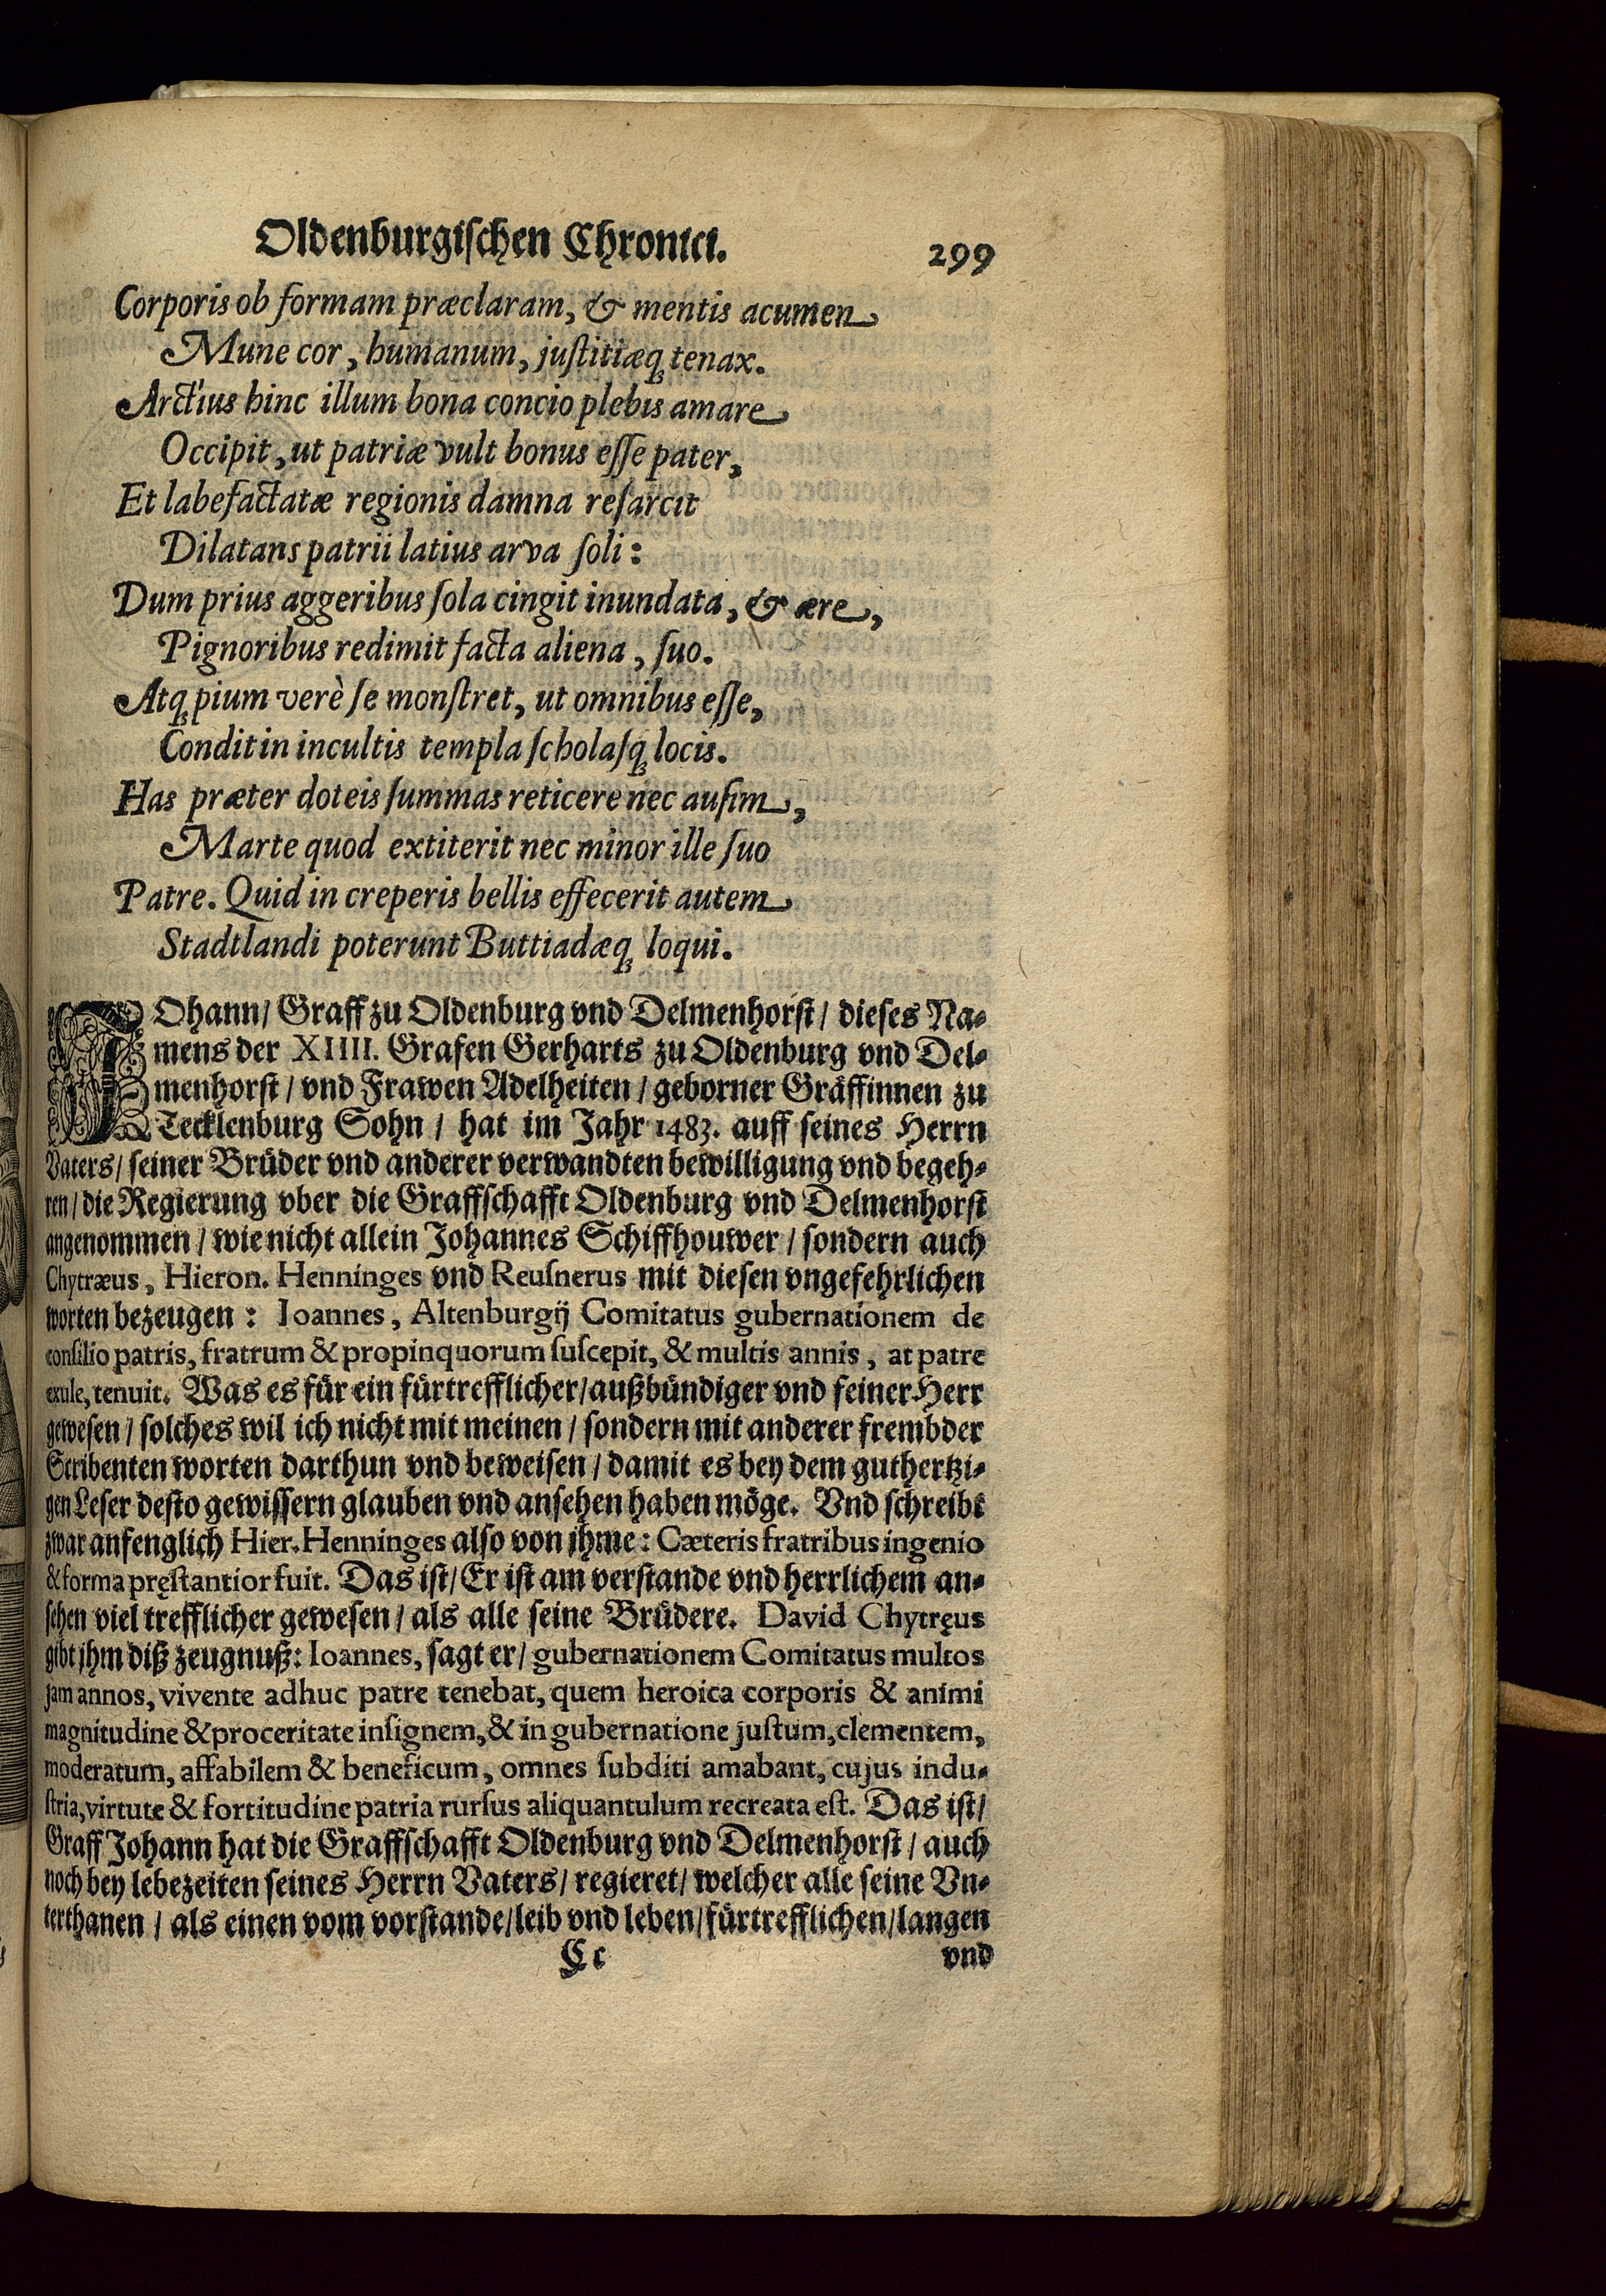 Oldenburgischen Chronici. 299
Corporis ob formam præclaram, & mentis acumen
Mune cor, humanum, justitiæq́; tenax.
Arctius hinc illum bona concio plebis amare
Occipit, ut patriæ vult bonus esse pater,
Et labefactatæ regionis damna resarcit
Dilatans patrii latius arva soli:
Dum prius aggeribus sola cingit inundata, & ære,
Pignoribus redimit facta aliena, suo.
Atq́; pium verè se monstret, ut omnibus esse,
Condit in incultis templa scholasq́; locis.
Has præter doteis summas reticere nec ausim,
Marte quod extiterit nec minor ille suo
Patre. Quid in creperis bellis effecerit autem
Stadtlandi poterunt Buttiadæq́; loqui.
JOhann/ Graff zu Oldenburg vnd Delmenhorst/ dieses Na-
mens der XIIII. Grafen Gerharts zu Oldenburg vnd Del-
menhorst/ vnd Frawen Adelheiten/ geborner Gräffinnen zu
Tecklenburg Sohn/ hat im Jahr 1483. auff seines Herrn
Vaters/ seiner Brüder vnd anderer verwandten bewilligung vnd begeh-
ren/ die Regierung vber die Graffschafft Oldenburg vnd Delmenhorst
angenommen/ wie nicht allein Johannes Schiffhouwer/ sondern auch
Chytræus, Hieron. Henninges vnd Reusnerus mit diesen vngefehrlichen
worten bezeugen: Ioannes, Altenburgij Comitatus gubernationem de
consilio patris, fratrum & propinquorum suscepit, & multis annis, at patre
exule, tenuit. Was es für ein fürtrefflicher/ außbündiger vnd feiner Herr
gewesen/ solches wil ich nicht mit meinen/ sondern mit anderer frembder
Scribenten worten darthun vnd beweisen/ damit es bey dem guthertzi-
gen Leser desto gewissern glauben vnd ansehen haben möge. Vnd schreibt
zwar anfenglich Hier. Henninges also von jhme: Cæteris fratribus ingenio
& forma pręstantior fuit. Das ist/ Er ist am verstande vnd herrlichem an-
sehen viel trefflicher gewesen/ als alle seine Brüdere. David Chytręus
gibt jhm diß zeugnuß: Ioannes, sagt er/ gubernationem Comitatus multos
jam annos, vivente adhuc patre tenebat, quem heroica corporis & animi
magnitudine & proceritate insignem, & in gubernatione justum, clementem,
moderatum, affabilem & beneficum, omnes subditi amabant, cujus indu-
stria, virtute & fortitudine patria rursus aliquantulum recreata est. Das ist/
Graff Johann hat die Graffschafft Oldenburg vnd Delmenhorst/ auch
noch bey lebezeiten seines Herrn Vaters/ regieret/ welcher alle seine Vn-
terthanen/ als einen vom vorstande/ leib vnd leben/ fürtrefflichen/ langen
Cc vnd